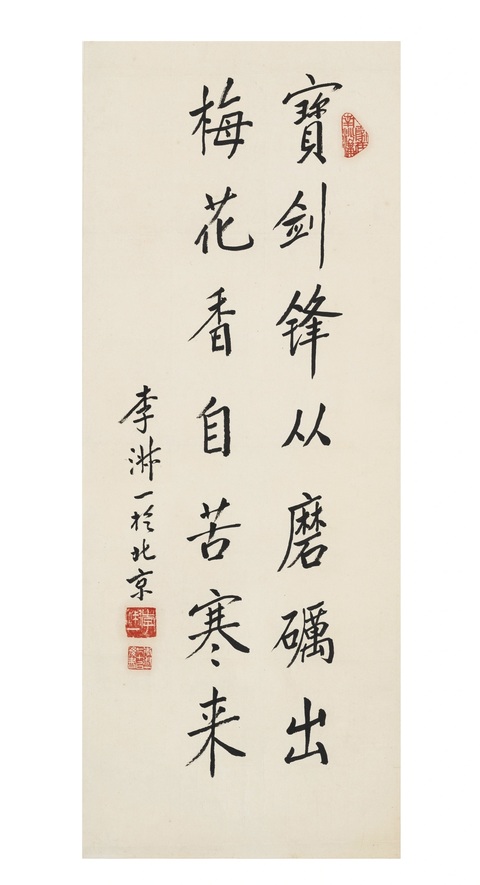 寶劍锋从磨礪出
梅花香自苦寒来
李淑一於北京